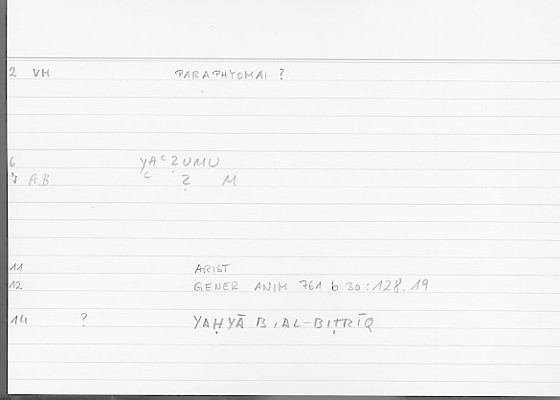 2 VM PARAPHYOMAI ?
6 YAᶜẒUMU
7 AB ᶜ Ẓ M
11 ARIST
12 GENER ANIM 761 b 30 : 128.19
14 ? YAḤYĀ B. AL-BIṬRĪQ